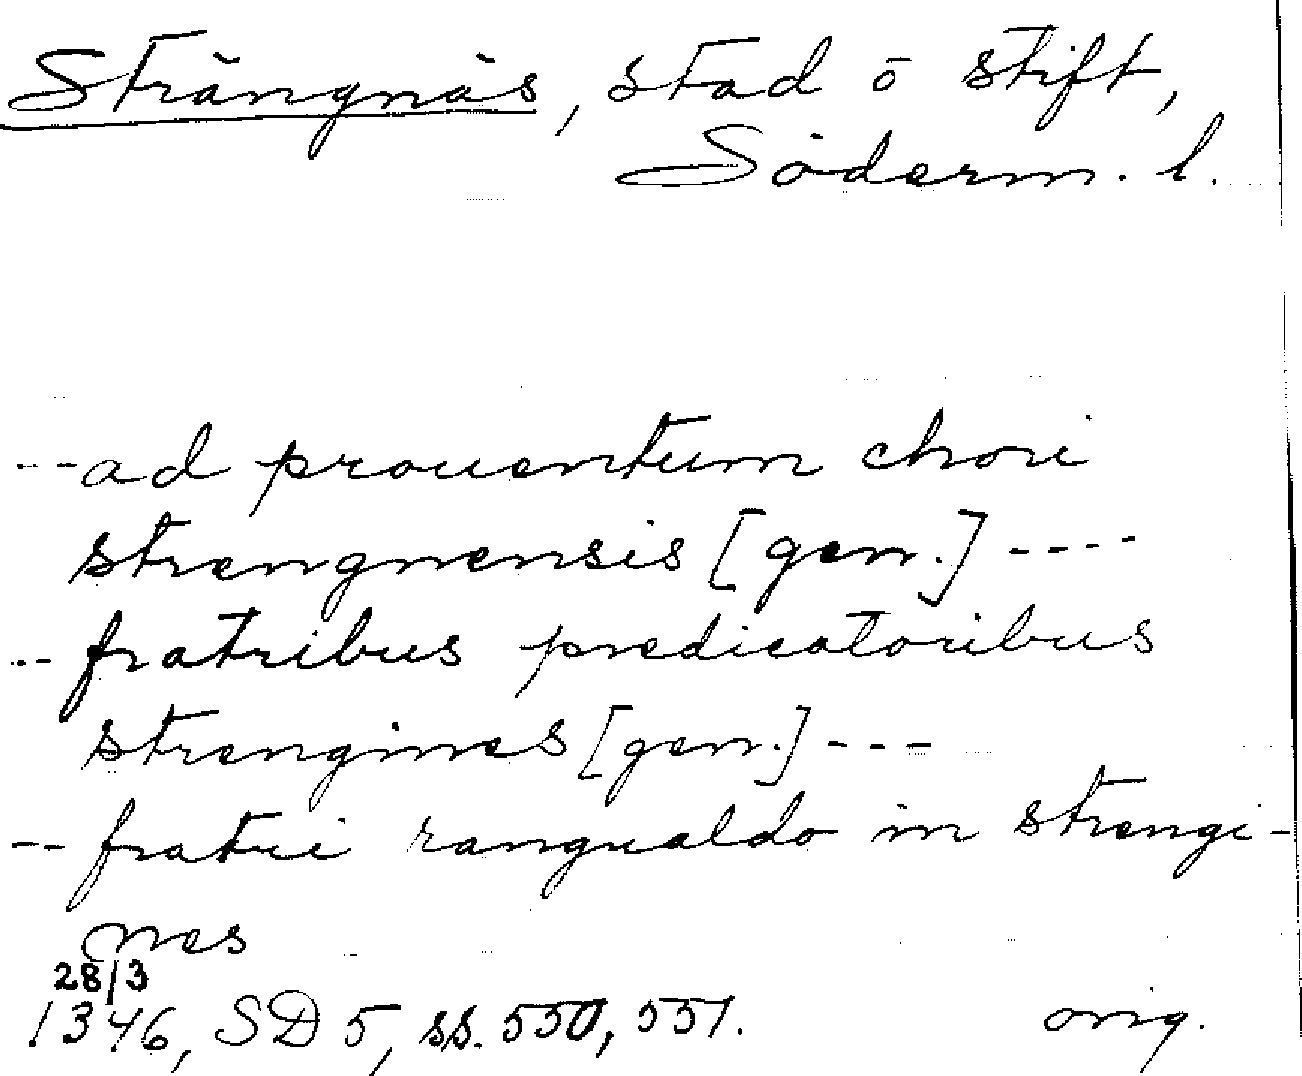 Strängnäs, stad o stift,
Söderm. l.
--- ad prouentum chori
strengnensis [gen.] ----
-- fratribus predicatoribus
strengines [gen.] ---
-- fratri rangualdo in strengi-
nes
28/3
1346, SD 5, ss. 550, 551. orig.